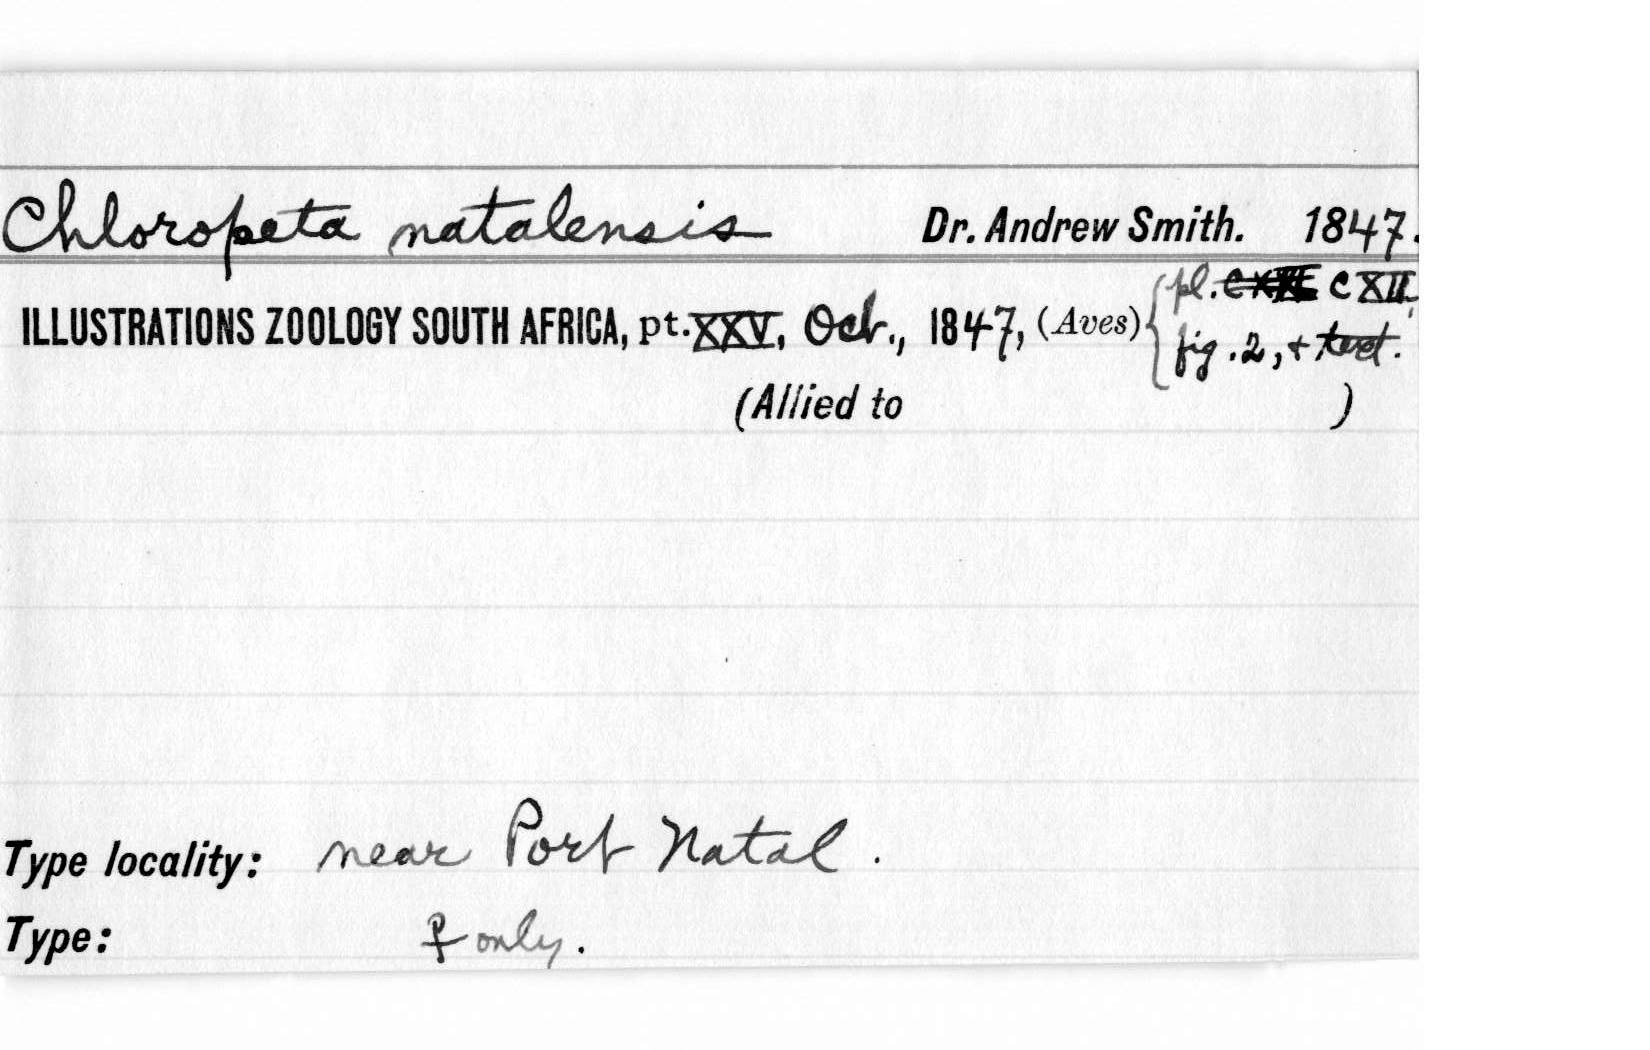 Chloropeta natalensis Dr. Andrew Smith. 1847.
ILLUSTRATIONS ZOOLOGY SOUTH AFRICA, pt. XXV, Oct., 1847, (Aves) { pl. CXII,
fig. 2, + text.
(Allied to )
Type locality: near Port Natal.
Type: ♀ only.